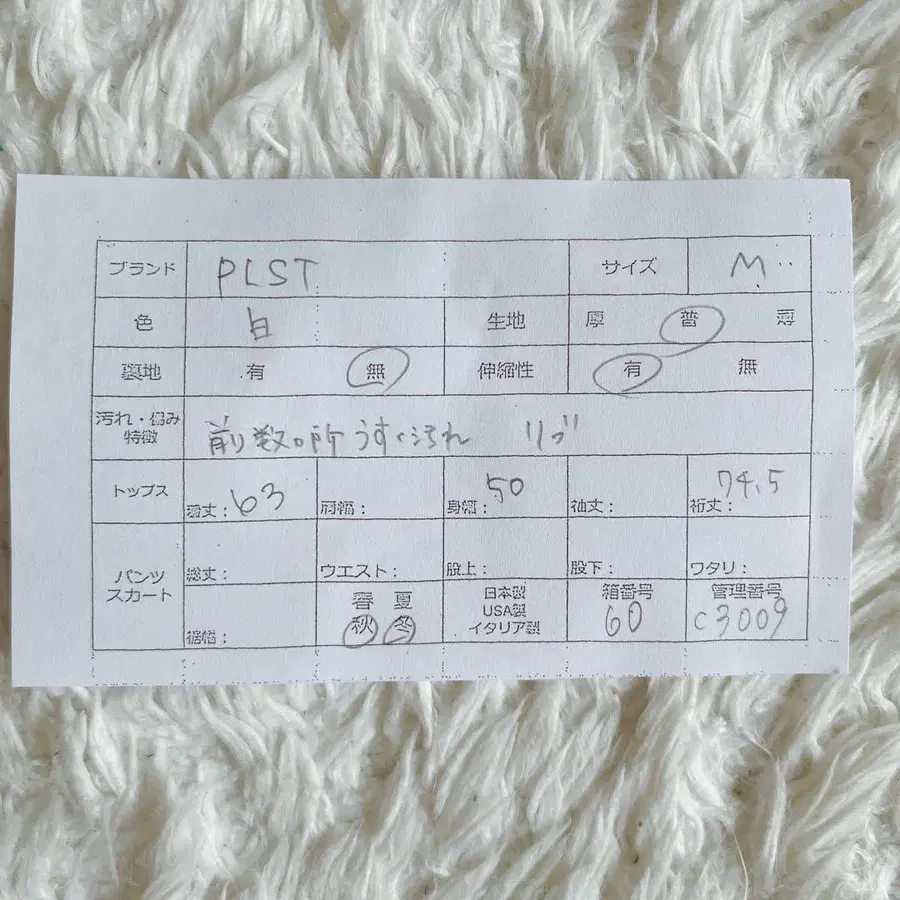 ブランド PLST サイズ M
色 白 生地 厚 普 薄
裏地 有 無 伸縮性 有 無
汚れ・傷み
特徴 前数ヶ所うすく汚れ リブ
トップス 着丈: 63 肩幅: 身幅: 50 袖丈: 裄丈: 74.5
パンツ
スカート 総丈: ウエスト: 股上: 股下: ワタリ:
裾幅: 春 夏
秋 冬
日本製
USA製
イタリア製
箱番号
60
管理番号
C3009